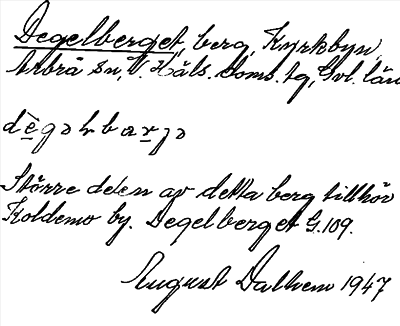 Degelberget, berg, Kyrkbyn,
Arbrå sn, V. Häls. Doms. tg, Gvl. län
dègəlbarjə
Större delen av detta berg tillhör
Koldemo by. Degelberget G. 109.
August Dalhem 1947